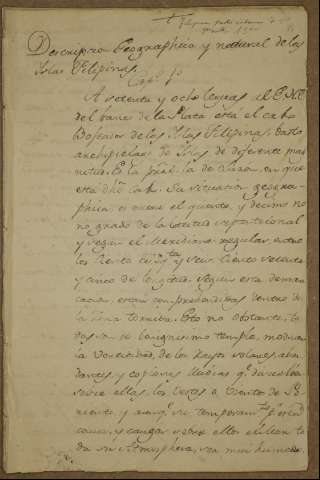 Descripcion Geographica, y natural de las
Islas Filipinas.
Cap.º 1º
A setenta y ocho leguas al E.N.E.
del banco de la Plata está el cabo
Bojeador de las Islas Filipinas, basto
archipielago de Islas de diferente mag
nitud. Es la prâl. la de Luzon, en que
está dho cabo. Su situacion geogra-
phica, es entre el quarto, y decimo no
no grado de la latitud septentrional
y segun el Meridiano regular, entre
los Ciento
y cinco de longitud. Segun esta demar
cacion, estan comprehendidas dentro de
la Zona torrida. Esto no obstante, to
das son de benignissimo temple, moderan
la voracidad, de los Rayos solares, abun
dantes, y copiosas lluvias qe. descuelgan
sobre ellas, los vertes o viento de Po
niente, y aunqe. se temperan
causa, y cargar sobre ellas
da su Atmosphera, sea mui humeda